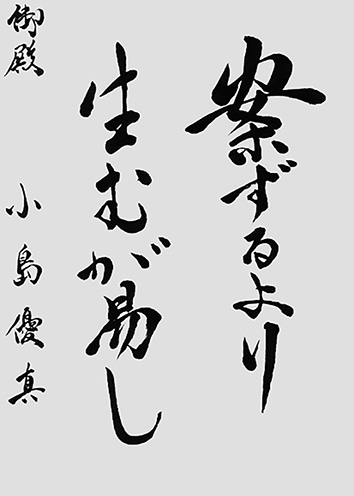 案ずるより
生むが易し
御殿 小島優真